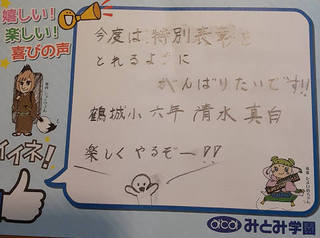 嬉しい！
楽しい！
喜びの声
今度は特別表彰を
とれるように
がんばりたいです!!
鶴城小 六年 清水 真白
楽しくやるぞー!!
イイネ！
みとみ学園